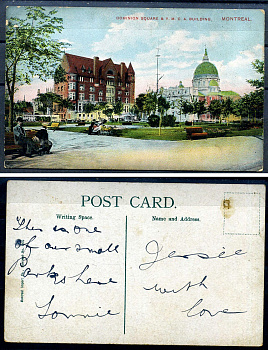 DOMINION SQUARE & Y. M. C. A. BUILDING, MONTREAL.
POST CARD.
Writing Space.
Name and Address.
This is one
of our small
Parks here
Lonnie
Jessie
with
love